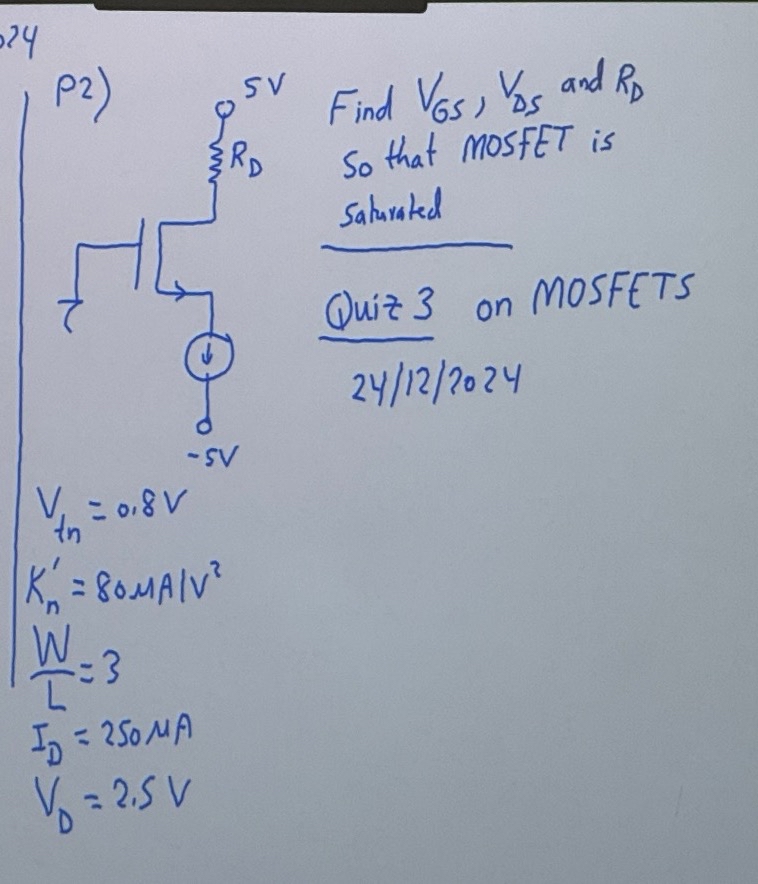 024
P2)
5V
R_D
-5V
Find V_GS, V_DS and R_D
so that MOSFET is
saturated
Quiz 3 on MOSFETS
24/12/2024
V_tn = 0.8 V
K'_n = 80 µA/V²
W/L = 3
I_D = 250 µA
V_D = 2.5 V